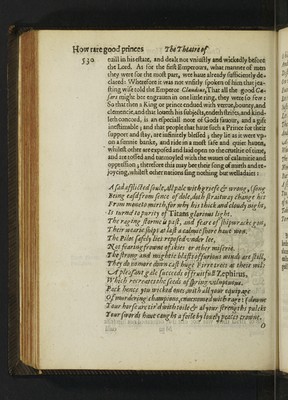 How rare good princes The Theatre of
530.
euill in his estate, and dealt not vniustly and wickedly before
the Lord. As for the first Emperours, what manner of men
they were for the most part, wee haue already sufficiently de-
clared: Wherefore it was not vnfitly spoken of him that jea-
sting wise told the Emperor Claudius, That all the good Cæ-
sars might bee engrauen in one little ring, they were so few:
So that then a King or prince endued with vertue, bounty, and
clemencie, and that loueth his subjects, endeth strifes, and kind-
leth concord, is an especiall note of Gods fauour, and a gift
inestimable; and that people that haue such a Prince for their
support and stay, are infinitely blessed; they lie as it were vp-
on a sunnie banke, and ride in a most safe and quiet hauen,
whilest other are exposed and laid open to the crueltie of time,
and are tossed and turmoyled with the waues of calamitie and
oppression; therefore this may bee their song of mirth and re-
joycing, whilest other nations sing nothing but welladaies:
A sad afflicted soule, all pale with griefe &amp; wrong,
Being eased from sense of dole, doth
From to for why his thicke and cloudy night,
Is turnd to purity of Titans glorious light.
The raging storme is past, and feare of shipwracke gon,
Their wearie ships at last a calmie shore haue won.
The Pilot safely lies reposed vnder lee,
Not fearing frowne of skies or other miserie.
The strong and mightie blasts of furious winds are still,
They do no more downe cast huge at their will:
A pleasant gale succeeds of fruitfull Zephirus,
Which recreates the seeds of spring voluptuous.
Pack hence you wicked ones, with all your equipage
Of murdering champions, enuenomed with rage:
Your swords haue caught a foile by louely peaces
O